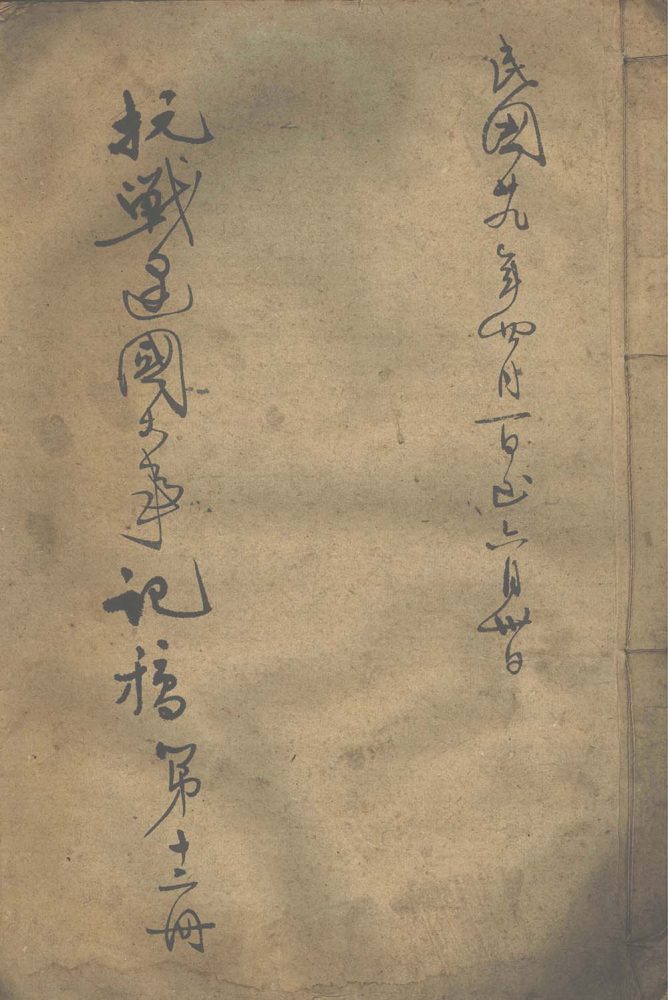 民國廿九年四月一日至六月卅日
抗戰建國大事記稿第十二冊